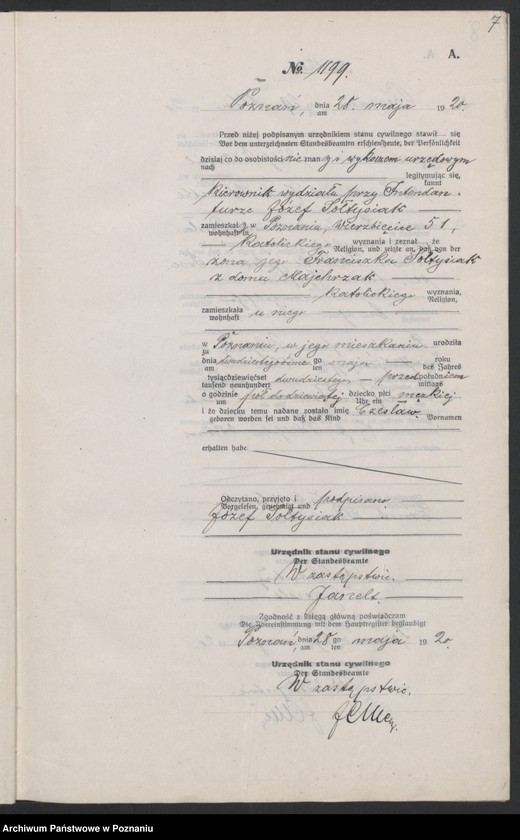 7
A.
№ 1199.
Poznań, dnia 28. maja 1920.
am
Przed niżej podpisanym urzędnikiem stanu cywilnego stawił się
Vor dem unterzeichneten Standesbeamten erschien heute, der Persönlichkeit
dzisiaj co do osobistości nie znany i wykazem urzędowym
nach
legitymując się,
kannt
kierownik wydziału przy Intendan-
turze Józef Sołtysiak
zamieszkały w Poznaniu, Wierzbięcice 51,
wohnhaft in
katolickiego wyznania i zeznał, że
Religion, und zeigte an, daß von der
żona jego Franciszka Sołtysiak
z domu Majchrzak
katolickiego wyznania,
Religion,
zamieszkała u niego
wohnhaft
w Poznaniu, w jego mieszkaniu urodziła
zu
dnia dwudziestego go maja roku
am ten des Jahres
tysiącdziewięćset dwudziestego przed południem
tausend neunhundert mittags
o godzinie pół do dziewiątej dziecko płci męskiej
um Uhr ein
i że dziecku temu nadane zostało imię Czesław.
geboren worden sei und daß das Kind Vornamen
erhalten habe
Odczytano, przyjęto i podpisano
Vorgelesen, genehmigt und
Józef Sołtysiak
Urzędnik stanu cywilnego
Der Standesbeamte
W zastępstwie.
Zgodność z księgą główną poświadczam
Die Übereinstimmung mit dem Hauptregister beglaubigt
Poznań, dnia 28 go maja 1920.
am ten
Urzędnik stanu cywilnego
Der Standesbeamte
W zastępstwie.
Archiwum Państwowe w Poznaniu